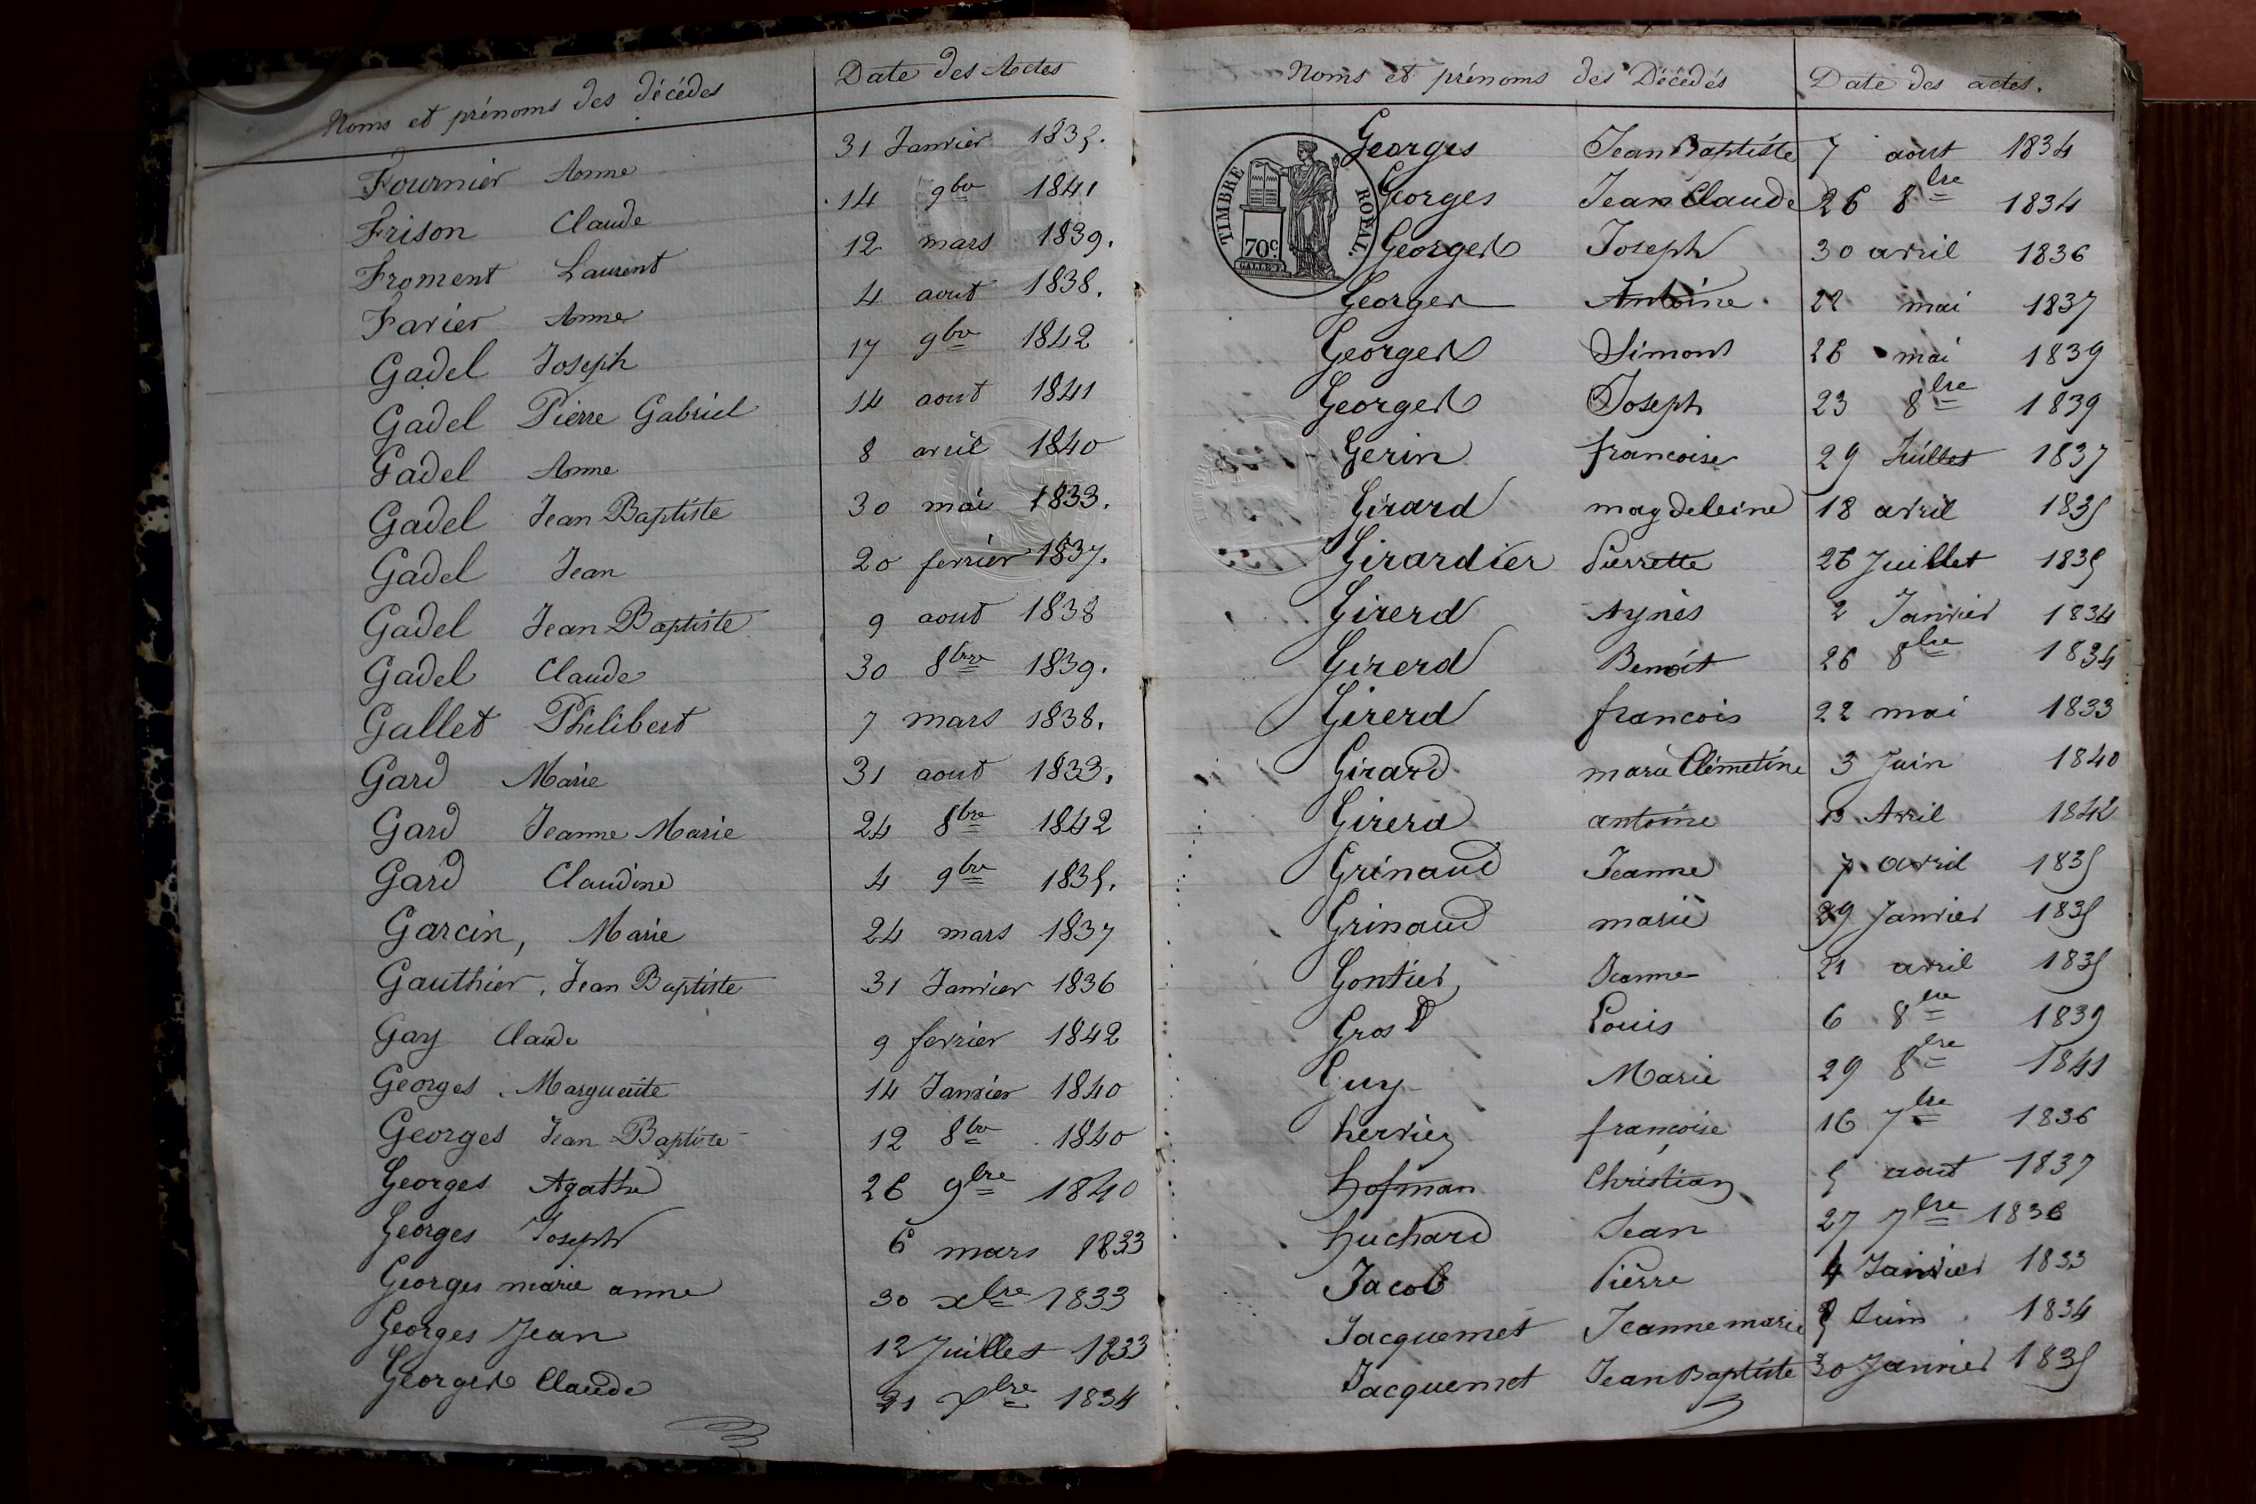 Noms et prénoms des décédés Date des Actes
Fournier Anne 31 Janvier 1835.
Frison Claude 14 9bre 1841
Froment Laurent 12 mars 1839.
Favier Anne 4 aout 1838.
Gadel Joseph 17 9bre 1842
Gadel Pierre Gabriel 14 aout 1841
Gadel Anne 8 avril 1840
Gadel Jean Baptiste 30 mai 1833.
Gadel Jean 20 fevrier 1837.
Gadel Jean Baptiste 9 aout 1838
Gadel Claude 30 8bre 1839.
Gallet Philibert 7 mars 1838.
Gard Marie 31 aout 1833.
Gard Jeanne Marie 24 8bre 1842
Gard Claudine 4 9bre 1835.
Garcin, Marie 24 mars 1837
Gauthier, Jean Baptiste 31 Janvier 1836
Gay Claude 9 fevrier 1842
Georges Marguerite 14 Janvier 1840
Georges Jean Baptiste 12 8bre 1840
Georges Agathe 26 9bre 1840
Georges Joseph 6 mars 1833
Georges marie anne 30 xbre 1833
Georges Jean 12 Juillet 1833
Georges Claude 21 1834
Noms et prénoms des Décédés Date des actes.
TIMBRE ROYAL.
70c.
Georges Jean Baptiste 7 aout 1834
Georges Jean Claude 26 8bre 1834
Georges Joseph 30 avril 1836
Georges Antoine 22 mai 1837
Georges Simont 26 mai 1839
Georges Joseph 23 8bre 1839
Gerin francoise 29 Juillet 1837
Girard magdeleine 18 avril 1835
Girardier Pierrette 26 Juillet 1835
Girerd Agnès 2 Janvier 1834
Girerd Benoit 26 8bre 1834
Girerd francois 22 mai 1833
Girard marie Clémetine 3 Juin 1840
Girerd antoine Avril 1842
Grinaud Jeanne 7 avril 1835
Grinaud marie 29 Janvier 1835
Gontier Jeanne 21 avril 1835
Gros Louis 6 8bre 1839
Guy Marie 29 8bre 1841
hervier françoise 16 7bre 1836
hofman Christian 5 aout 1837
huchard Jean 27 7bre 1836
Jacob Pierre 4 Janvier 1833
Jacquemet Jeanne marie Juin 1834
Jacquemet Jean Baptiste 30 Janvier 1835